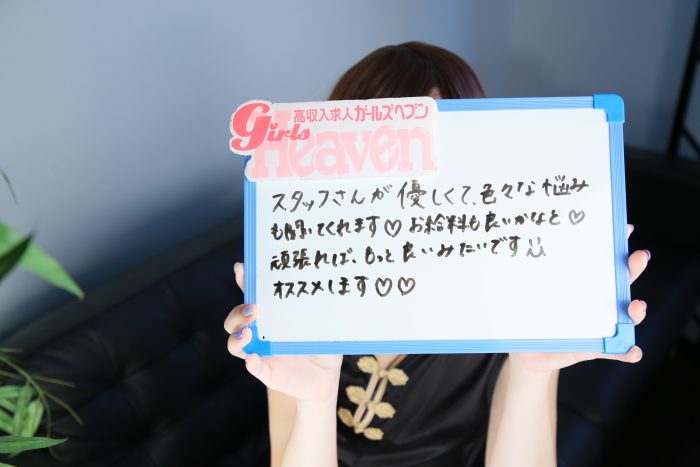 高収入求人 ガールズヘブン
Girls
Heaven
スタッフさんが優しくて、色々な悩み
も聞いてくれます♡ お給料も良いかなと♡
頑張れば、もっと良いみたいです
オススメします♡♡